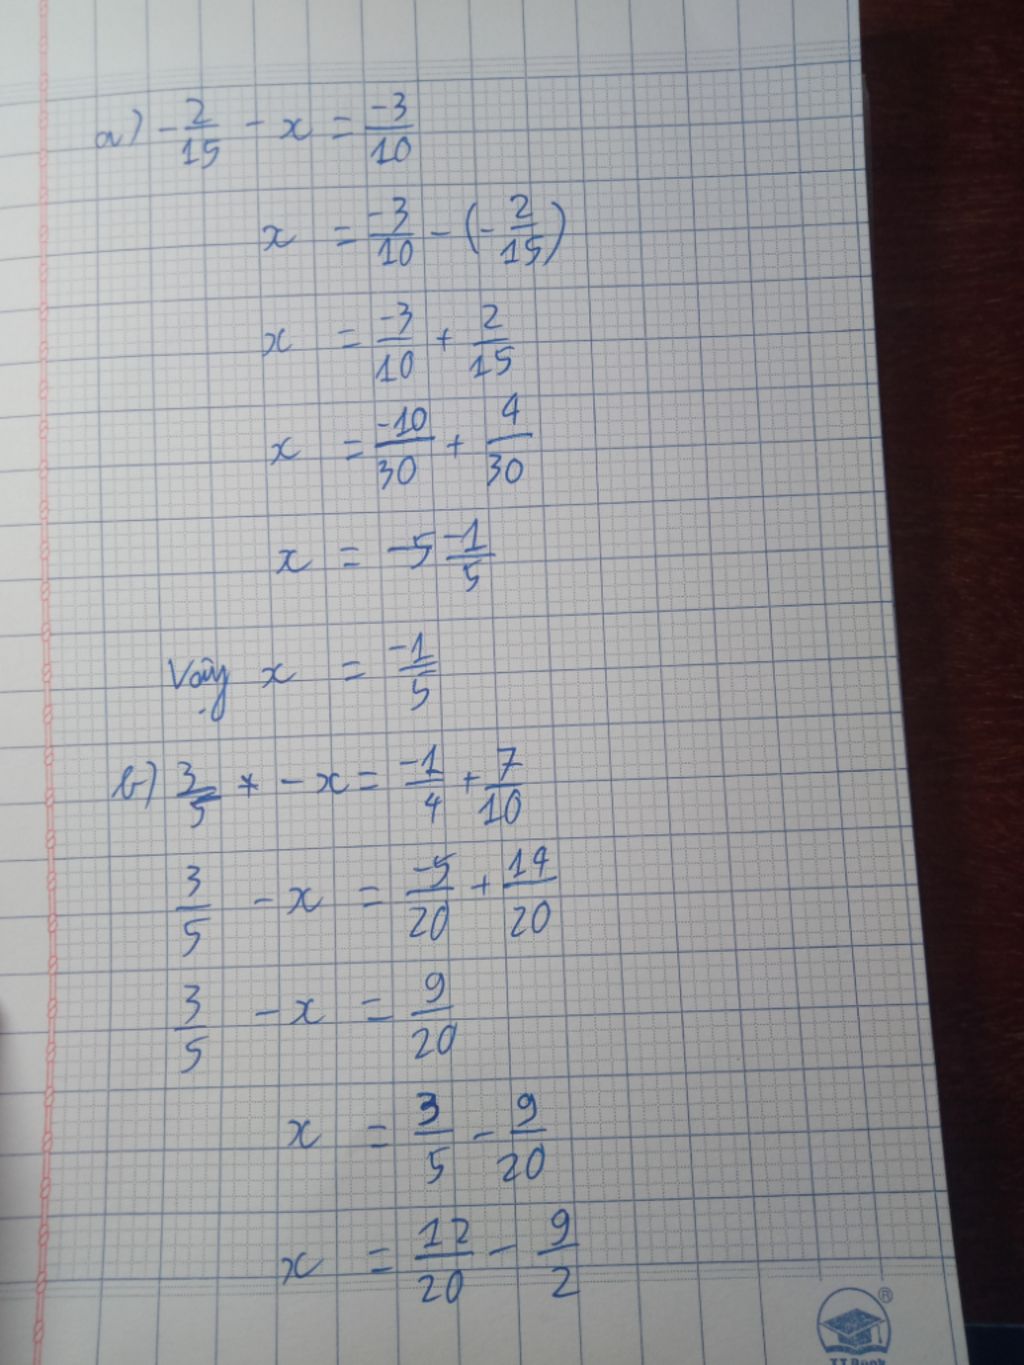 a) -2/15 - x = -3/10
x = -3/10 - (-2/15)
x = -3/10 + 2/15
x = -10/30 + 4/30
x = -5 -1/5
Vậy x = -1/5
b) 3/5 * - x = -1/4 + 7/10
3/5 - x = -5/20 + 14/20
3/5 - x = 9/20
x = 3/5 - 9/20
x = 12/20 - 9/2
®